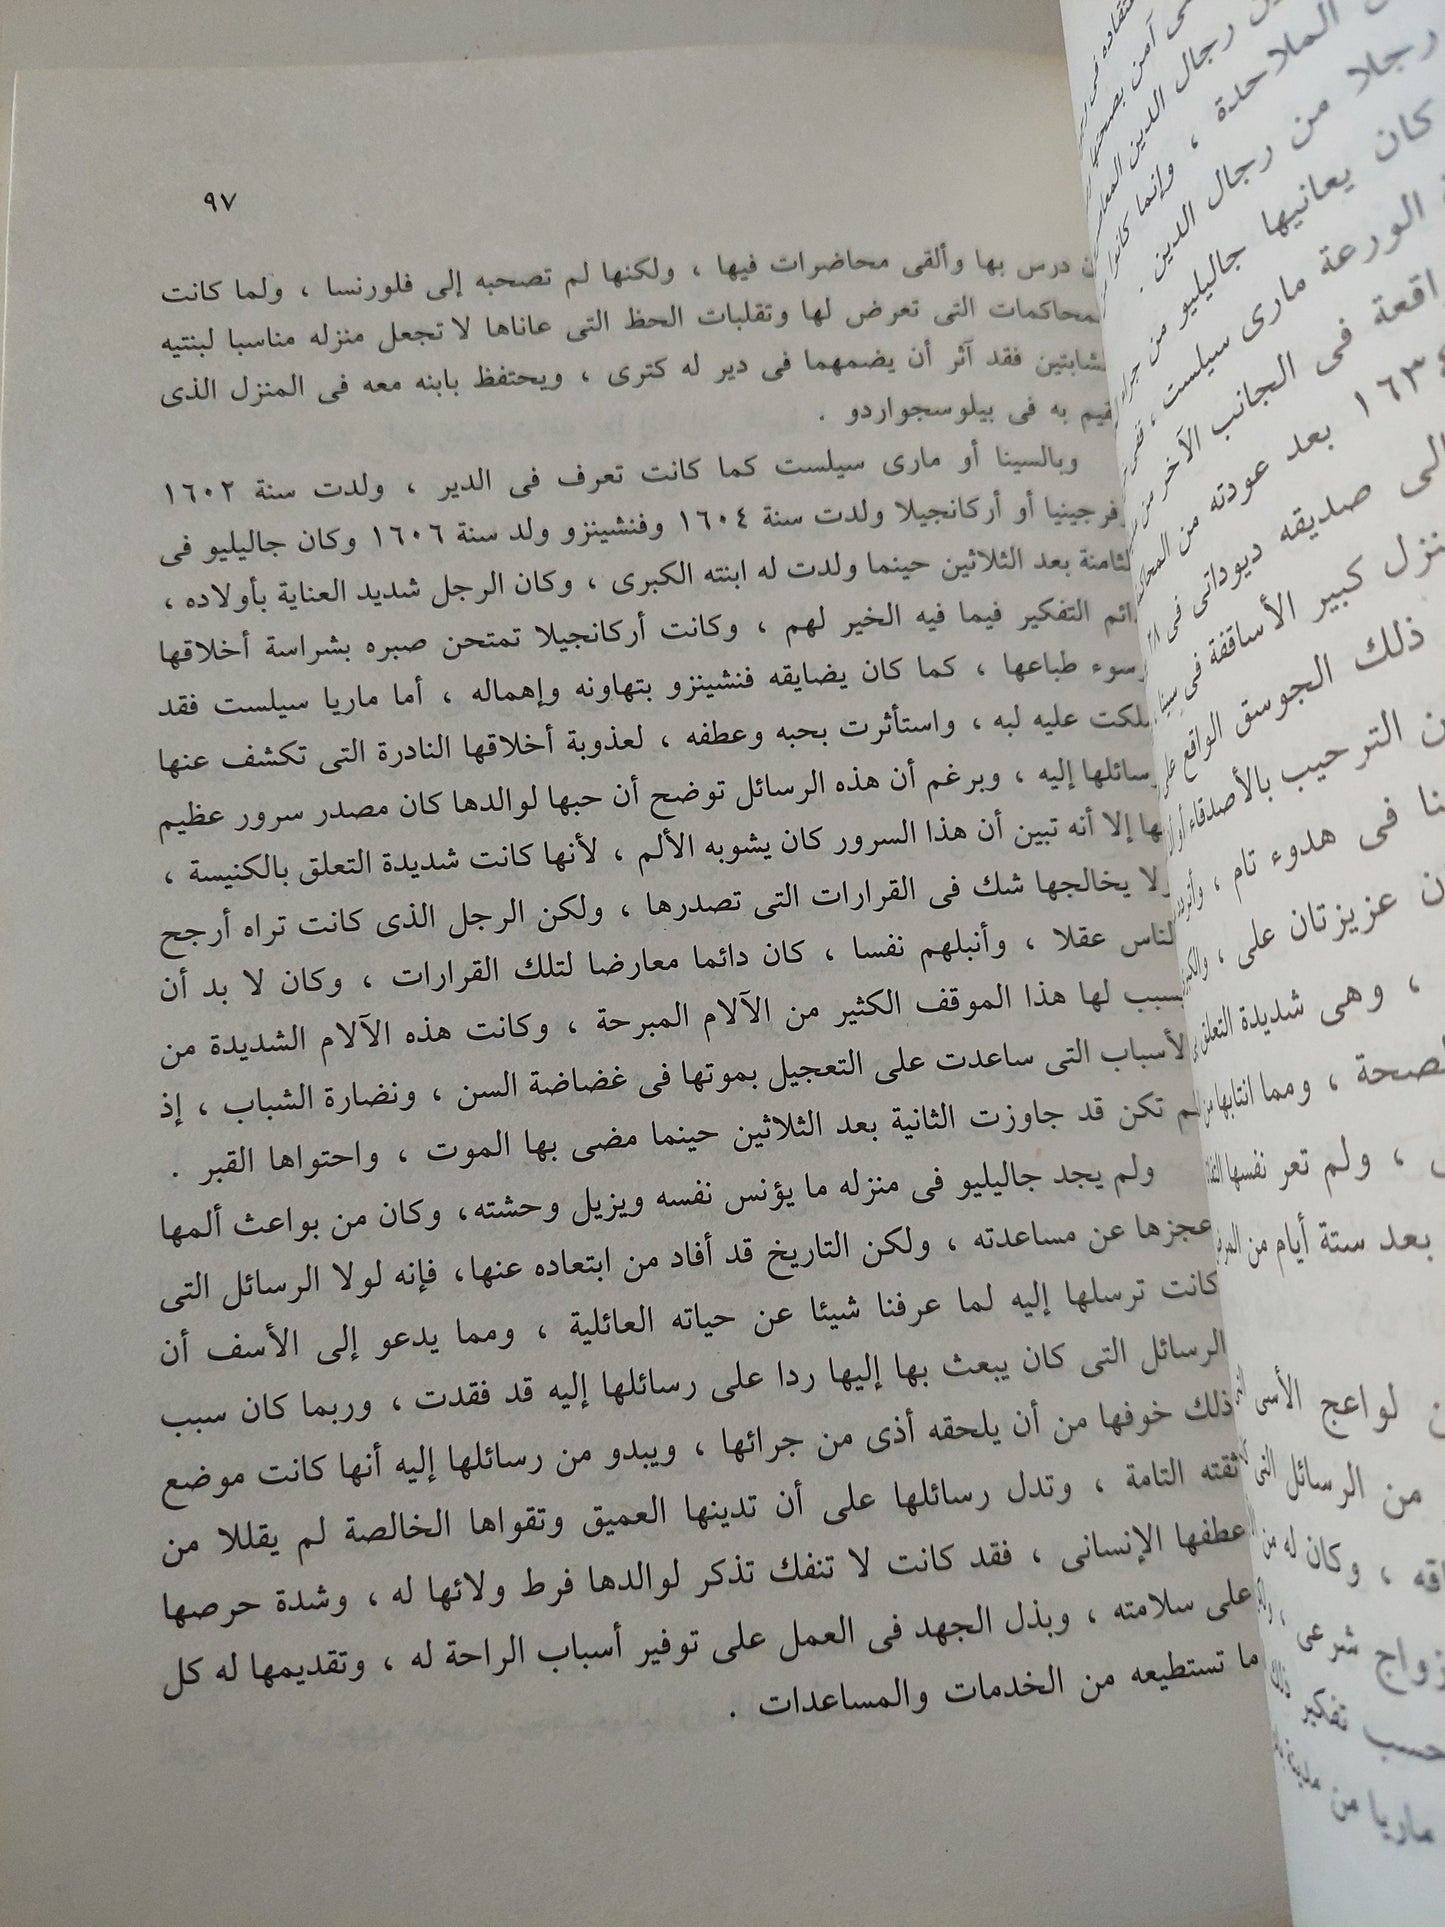 ٩٧
درس بها وألقى محاضرات فيها ، ولكنها لم تصحبه إلى فلورنسا ، ولما كانت
المحاكمات التى تعرض لها وتقلبات الحظ التى عاناها لا تجعل منزله مناسبا لبنتيه
الشابتين فقد آثر أن يضمهما فى دير له كترى ، ويحتفظ بابنه معه فى المنزل الذى
يقيم به فى بيلوسجواردو .
وبالسينا أو مارى سيلست كما كانت تعرف فى الدير ، ولدت سنة ١٦٠٢
وفرجينيا أو أركانجيلا ولدت سنة ١٦٠٤ وفنشينزو ولد سنة ١٦٠٦ وكان جاليليو فى
الثامنة بعد الثلاثين حينما ولدت له ابنته الكبرى ، وكان الرجل شديد العناية بأولاده ،
دائم التفكير فيما فيه الخير لهم ، وكانت أركانجيلا تمتحن صبره بشراسة أخلاقها
وسوء طباعها ، كما كان يضايقه فنشينزو بتهاونه وإهماله ، أما ماريا سيلست فقد
ملكت عليه لبه ، واستأثرت بحبه وعطفه ، لعذوبة أخلاقها النادرة التى تكشف عنها
رسائلها إليه ، وبرغم أن هذه الرسائل توضح أن حبها لوالدها كان مصدر سرور عظيم
لها إلا أنه تبين أن هذا السرور كان يشوبه الألم ، لأنها كانت شديدة التعلق بالكنيسة ،
ولا يخالجها شك فى القرارات التى تصدرها ، ولكن الرجل الذى كانت تراه أرجح
الناس عقلا ، وأنبلهم نفسا ، كان دائما معارضا لتلك القرارات ، وكان لا بد أن
يسبب لها هذا الموقف الكثير من الآلام المبرحة ، وكانت هذه الآلام الشديدة من
الأسباب التى ساعدت على التعجيل بموتها فى غضاضة السن ، ونضارة الشباب ، إذ
لم تكن قد جاوزت الثانية بعد الثلاثين حينما مضى بها الموت ، واحتواها القبر .
ولم يجد جاليليو فى منزله ما يؤنس نفسه ويزيل وحشته، وكان من بواعث ألمها
عجزها عن مساعدته ، ولكن التاريخ قد أفاد من ابتعاده عنها، فإنه لولا الرسائل التى
كانت ترسلها إليه لما عرفنا شيئا عن حياته العائلية ، ومما يدعو إلى الأسف أن
الرسائل التى كان يبعث بها إليها ردا على رسائلها إليه قد فقدت ، وربما كان سبب
ذلك خوفها من أن يلحقه أذى من جرائها ، ويبدو من رسائلها إليه أنها كانت موضع
ثقته التامة ، وتدل رسائلها على أن تدينها العميق وتقواها الخالصة لم يقللا من
عطفها الإنسانى ، فقد كانت لا تنفك تذكر لوالدها فرط ولائها له ، وشدة حرصها
على سلامته ، وبذل الجهد فى العمل على توفير أسباب الراحة له ، وتقديمها له كل
ما تستطيعه من الخدمات والمساعدات .
رجال الدين
الملاحدة ، وإنما كانوا
رجلا من رجال الدين .
كان يعانيها جاليليو من
الورعة مارى سيلست ،
فى الجانب الآخر من
بعد عودته من
صديقه ديوداتى فى
كبير الأساقفة فى سينا
ذلك الجوسق الواقع على
الترحيب بالأصدقاء أو
فى هدوء تام ،
عزيزتان على ،
، وهى شديدة التعلق
، ومما انتابها من
، ولم تعر نفسها
بعد ستة أيام من
لواعج الأسى
من الرسائل التى
، وكان له من
شرعى ،
تفكير
ماريا من